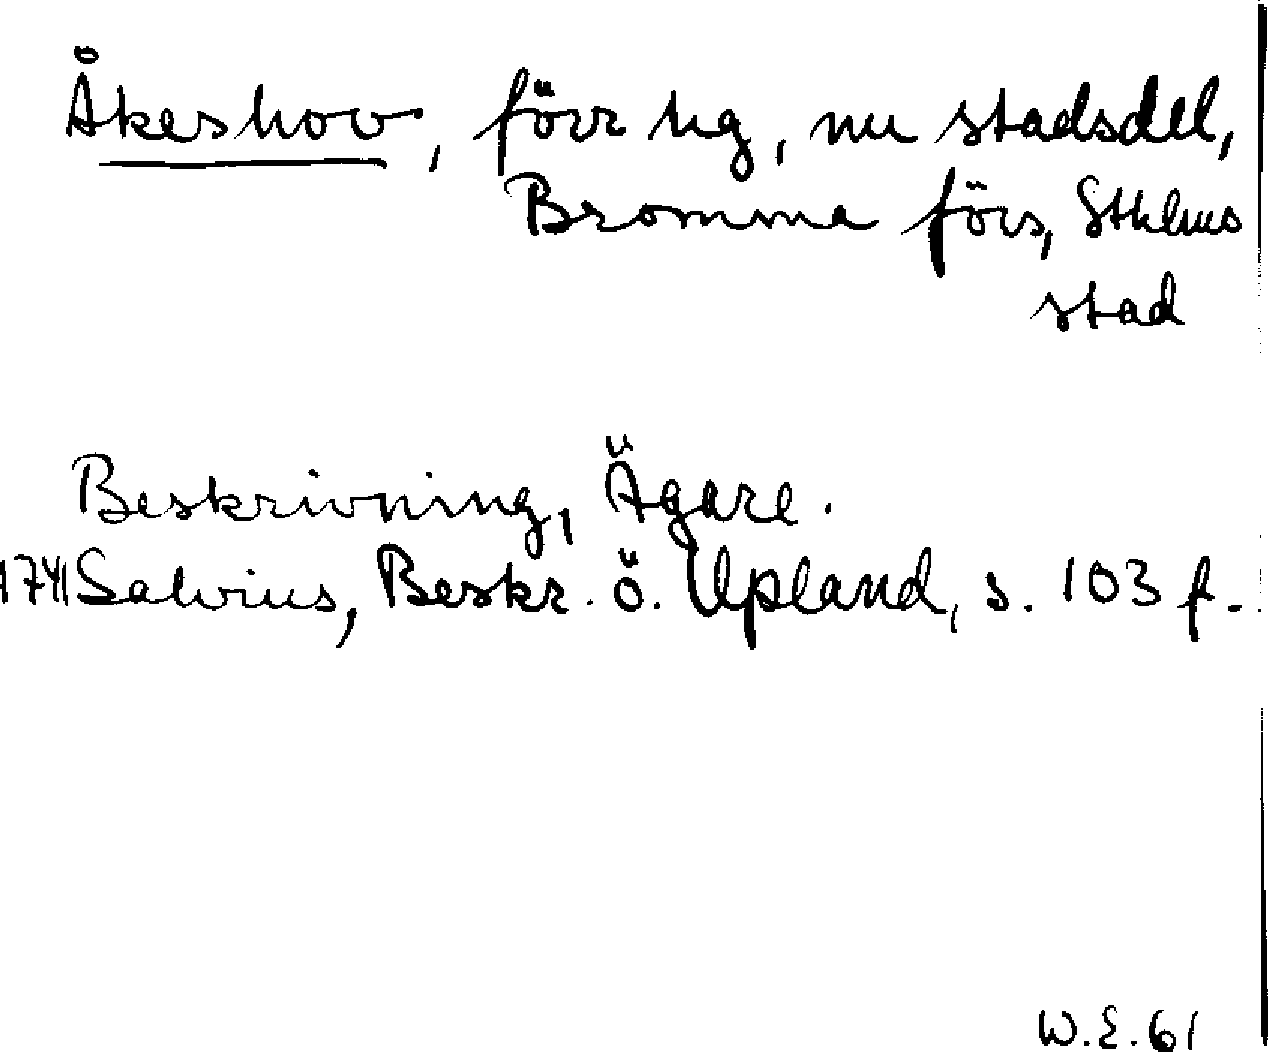 Åkeshov, förr hg, nu stadsdel,
Bromma förs, Sthlms
stad
Beskrivning, Ägare.
1741 Salvius, Beskr. ö. Upland, s. 103 f.
W.E. 61